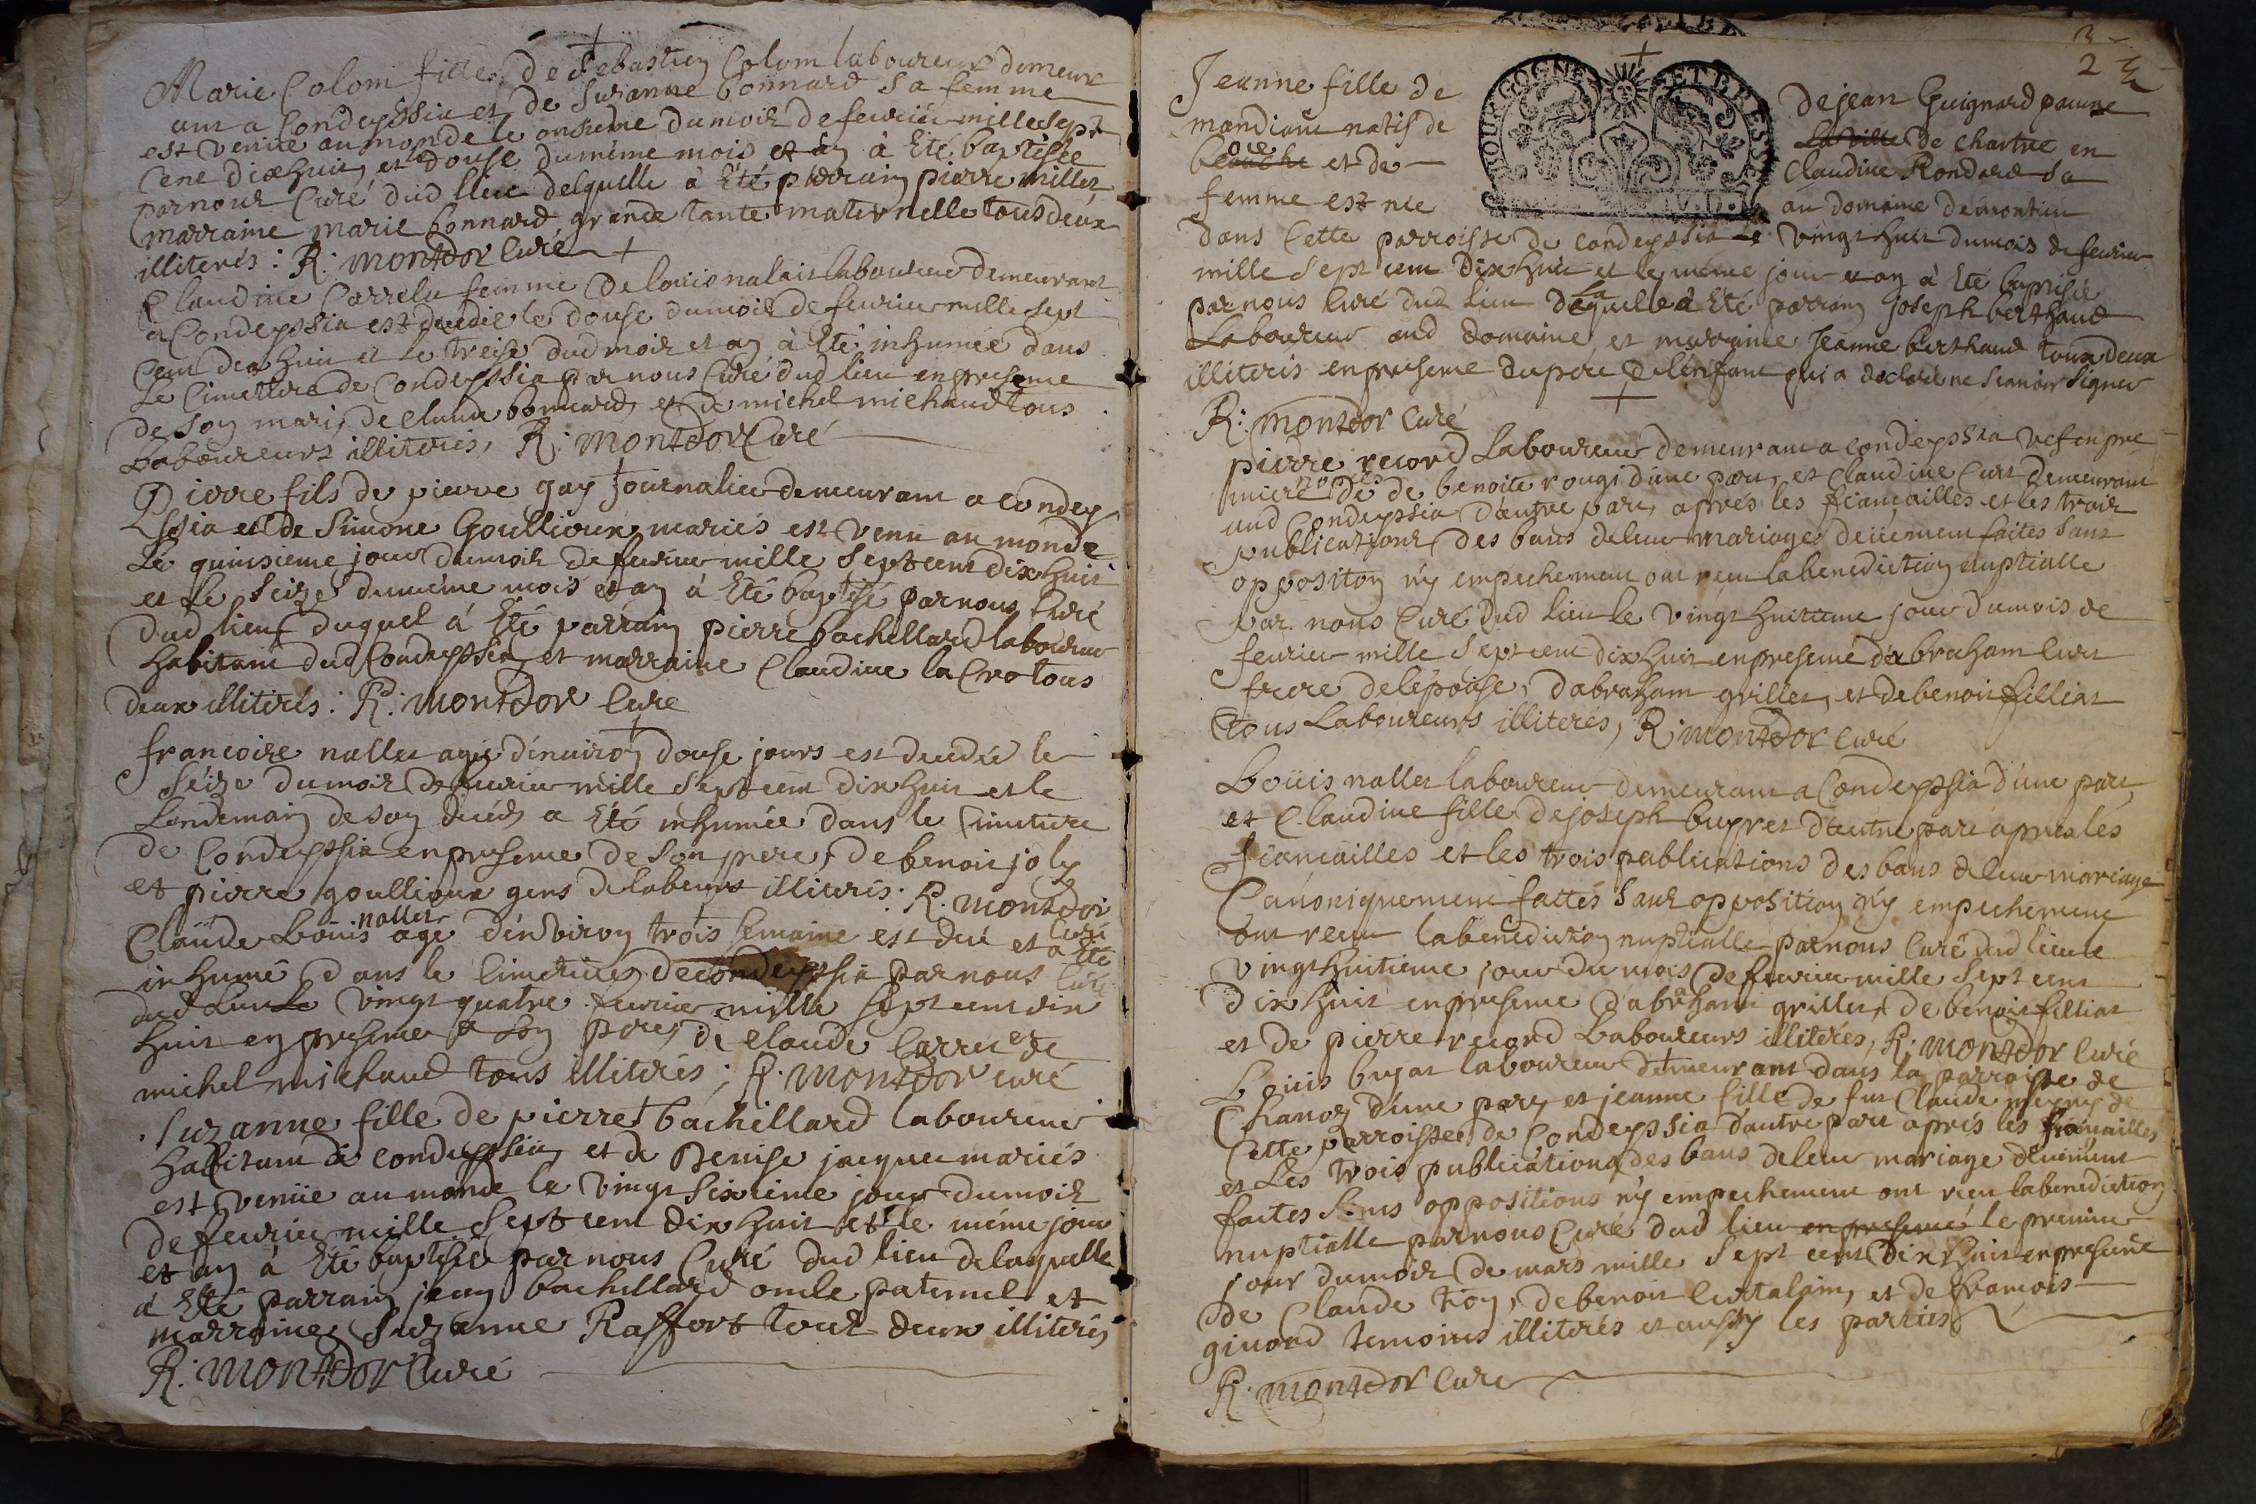 Marie Colom fille de Sebastien Colom laboureur demeur
ant a Condeyssia et de Suzanne bonnard Sa femme
est venue au monde le onsieme du mois de feurier mille sept
cent dixhuit et le douse du même mois et an à Eté baptisée
par nous Curé dud lieu delquelle à Eté parrain pierre millet
marraine marie bonnard grande tante maternelle tous deux
illiterés : R: montdor Curé
Claudine Carrelet femme de louis nalet laboureur demeurant
a Condeyssia est decedée le douse du mois de feurier mille sept
cent dixhuit et le treise dud mois et an à Eté inhumée dans
le Cimetiere de Condeyssia par nous Curé dud lieu en presence
de son mari, de Claude bonnard, et de michel michaud tous
Laboureurs illiterés, R: montdor Curé
Pierre fils de pierre gay Journalier demeurant a condey
ssia et de Simone Goullioux mariés est venu au monde
Le quinsieme jour du mois de feurier mille Sept cent dix huit
et le Seize du même mois et an à Eté baptisé par nous Curé
dud lieu duquel à Eté parrain pierre bachillard laboureur
habitant dud Condeyssia et marraine Claudine la Cro tous
deux illiterés : R: montdor Curé
francoise nallet agée d'enuiron douse jours est decedée le
Seize du mois de feurier mille Sept cent dix huit et le
Lendemain de son decés a Eté inhumée dans le Cimetiere
de Condeyssia en presence de son pere, de benoit joly
et pierre goullioux gens de labeurs illiterés. R: montdor
curé
Claude Louis nallet agé d'environ trois semaine est decé et a été
inhumé dans le Cimetiere de condeyssia par nous Curé
dud lieu le vingt quatre feurier mille sept cent dix
huit en presence de son pere, de claude Carrelet de
michel michaud tous illiterés ; R: montdor curé
Suzanne fille de pierre bachillard laboureur
habitant de condeyssia et de Denise jacquet mariés
est venüe au monde le vingt sixieme jour du mois
de feurier mille Sept cent dix huit et le même jour
et an à Eté baptisée par nous Curé dud lieu de laquelle
a Eté parrain jean bachillard oncle paternel et
marraine Suzanne Raffort tout deux illiterés
R: montdor Curé
3
2
BOURGOGNE ET BRESSE
Jeanne fille de de jean Guignard pauure
mandiant natif de la ville de chartre en
beauche oce et de Claudine Rondard sa
femme est née au domaine de montim
dans Cette parroisse de condeyssia le vingt huit du mois de feurier
mille Sept cent Dix huit et le même jour et an à Eté baptisée
par nous Curé dud Lieu de la quelle à Eté parrain joseph berthaud
Laboureur aud domaine et marraine Jeanne berthaud tous deux
illiterés en presence du père de l'enfant qui a declaré ne scauoir signer
R: montdor Curé
pierre record Laboureur demeurant a condeyssia vef en pre
mieres nopces de de benoite rougi d'une part, et Claudine Curt demeurant
aud Condeyssia d'autre part, aprés les fiançailles et les trois
publications des bans de leur mariage deüement faites sans
oppositon n'y empechement ont receu la benediction nuptialle
par nous Curé dud lieu le vingt huitieme jour du mois de
feurier mille Sept cent dix huit en presence d'abraham Curt
frere de l'épouse, d'abraham grillet, et de benoit filliat
tous Laboureurs illiterés, R: montdor Curé
Loüis nallet laboureur demeurant a Condeyssia d'une part,
et Claudine fille de joseph buyret d'autre part aprés les
fiancailles et les trois publications des bans de leur mariage
Canoniquement faites Sans opposition n'y empechement
ont receu la benediction nuptialle par nous Curé dud lieu le
vingt huitieme jour du mois de feurier mille sept cent
dix huit en presence d'abraham grillet, de benoit filliat
et de pierre record Laboureurs illiterés, R: montdor Curé
Loüis bugat laboureur demeurant dans la parroisse de
Chanoz d'une part et jeanne fille de fut Claude de
Cette parroisse de Condeyssia d'autre part aprés les fiancailles
et Les trois publications des bans de leur mariage deüement
faites Sans oppositions n'y empechement ont receu la benediction
nuptialle par nous Curé dud lieu en presence le premier
jour du mois de mars mille Sept cent Dix huit en presence
de Claude , de benoit Curtalain, et de francois
givord temoins illiterés et aussy les parties
R: montdor Curé